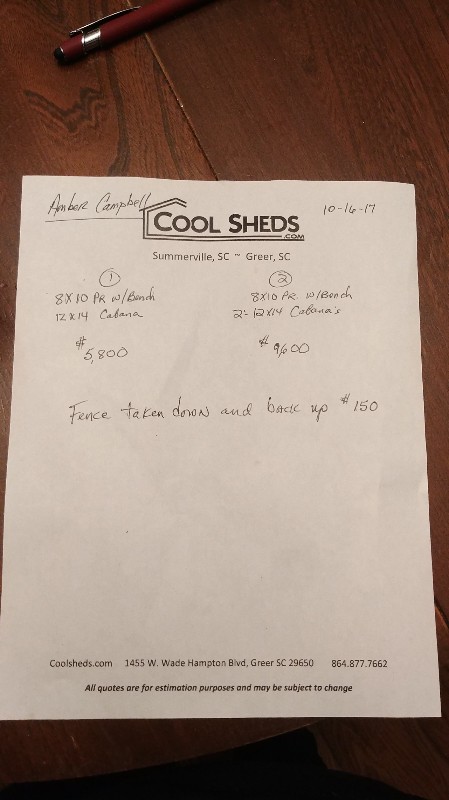 Amber Campbell
10-16-17
COOL SHEDS
.COM
Summerville, SC ~ Greer, SC
1
8X10 PR w/Bench
12x14 Cabana
$5,800
2
8X10 PR w/Bench
2- 12x14 Cabana's
$9600
Fence taken down and back up $150
Coolsheds.com 1455 W. Wade Hampton Blvd, Greer SC 29650 864.877.7662
All quotes are for estimation purposes and may be subject to change